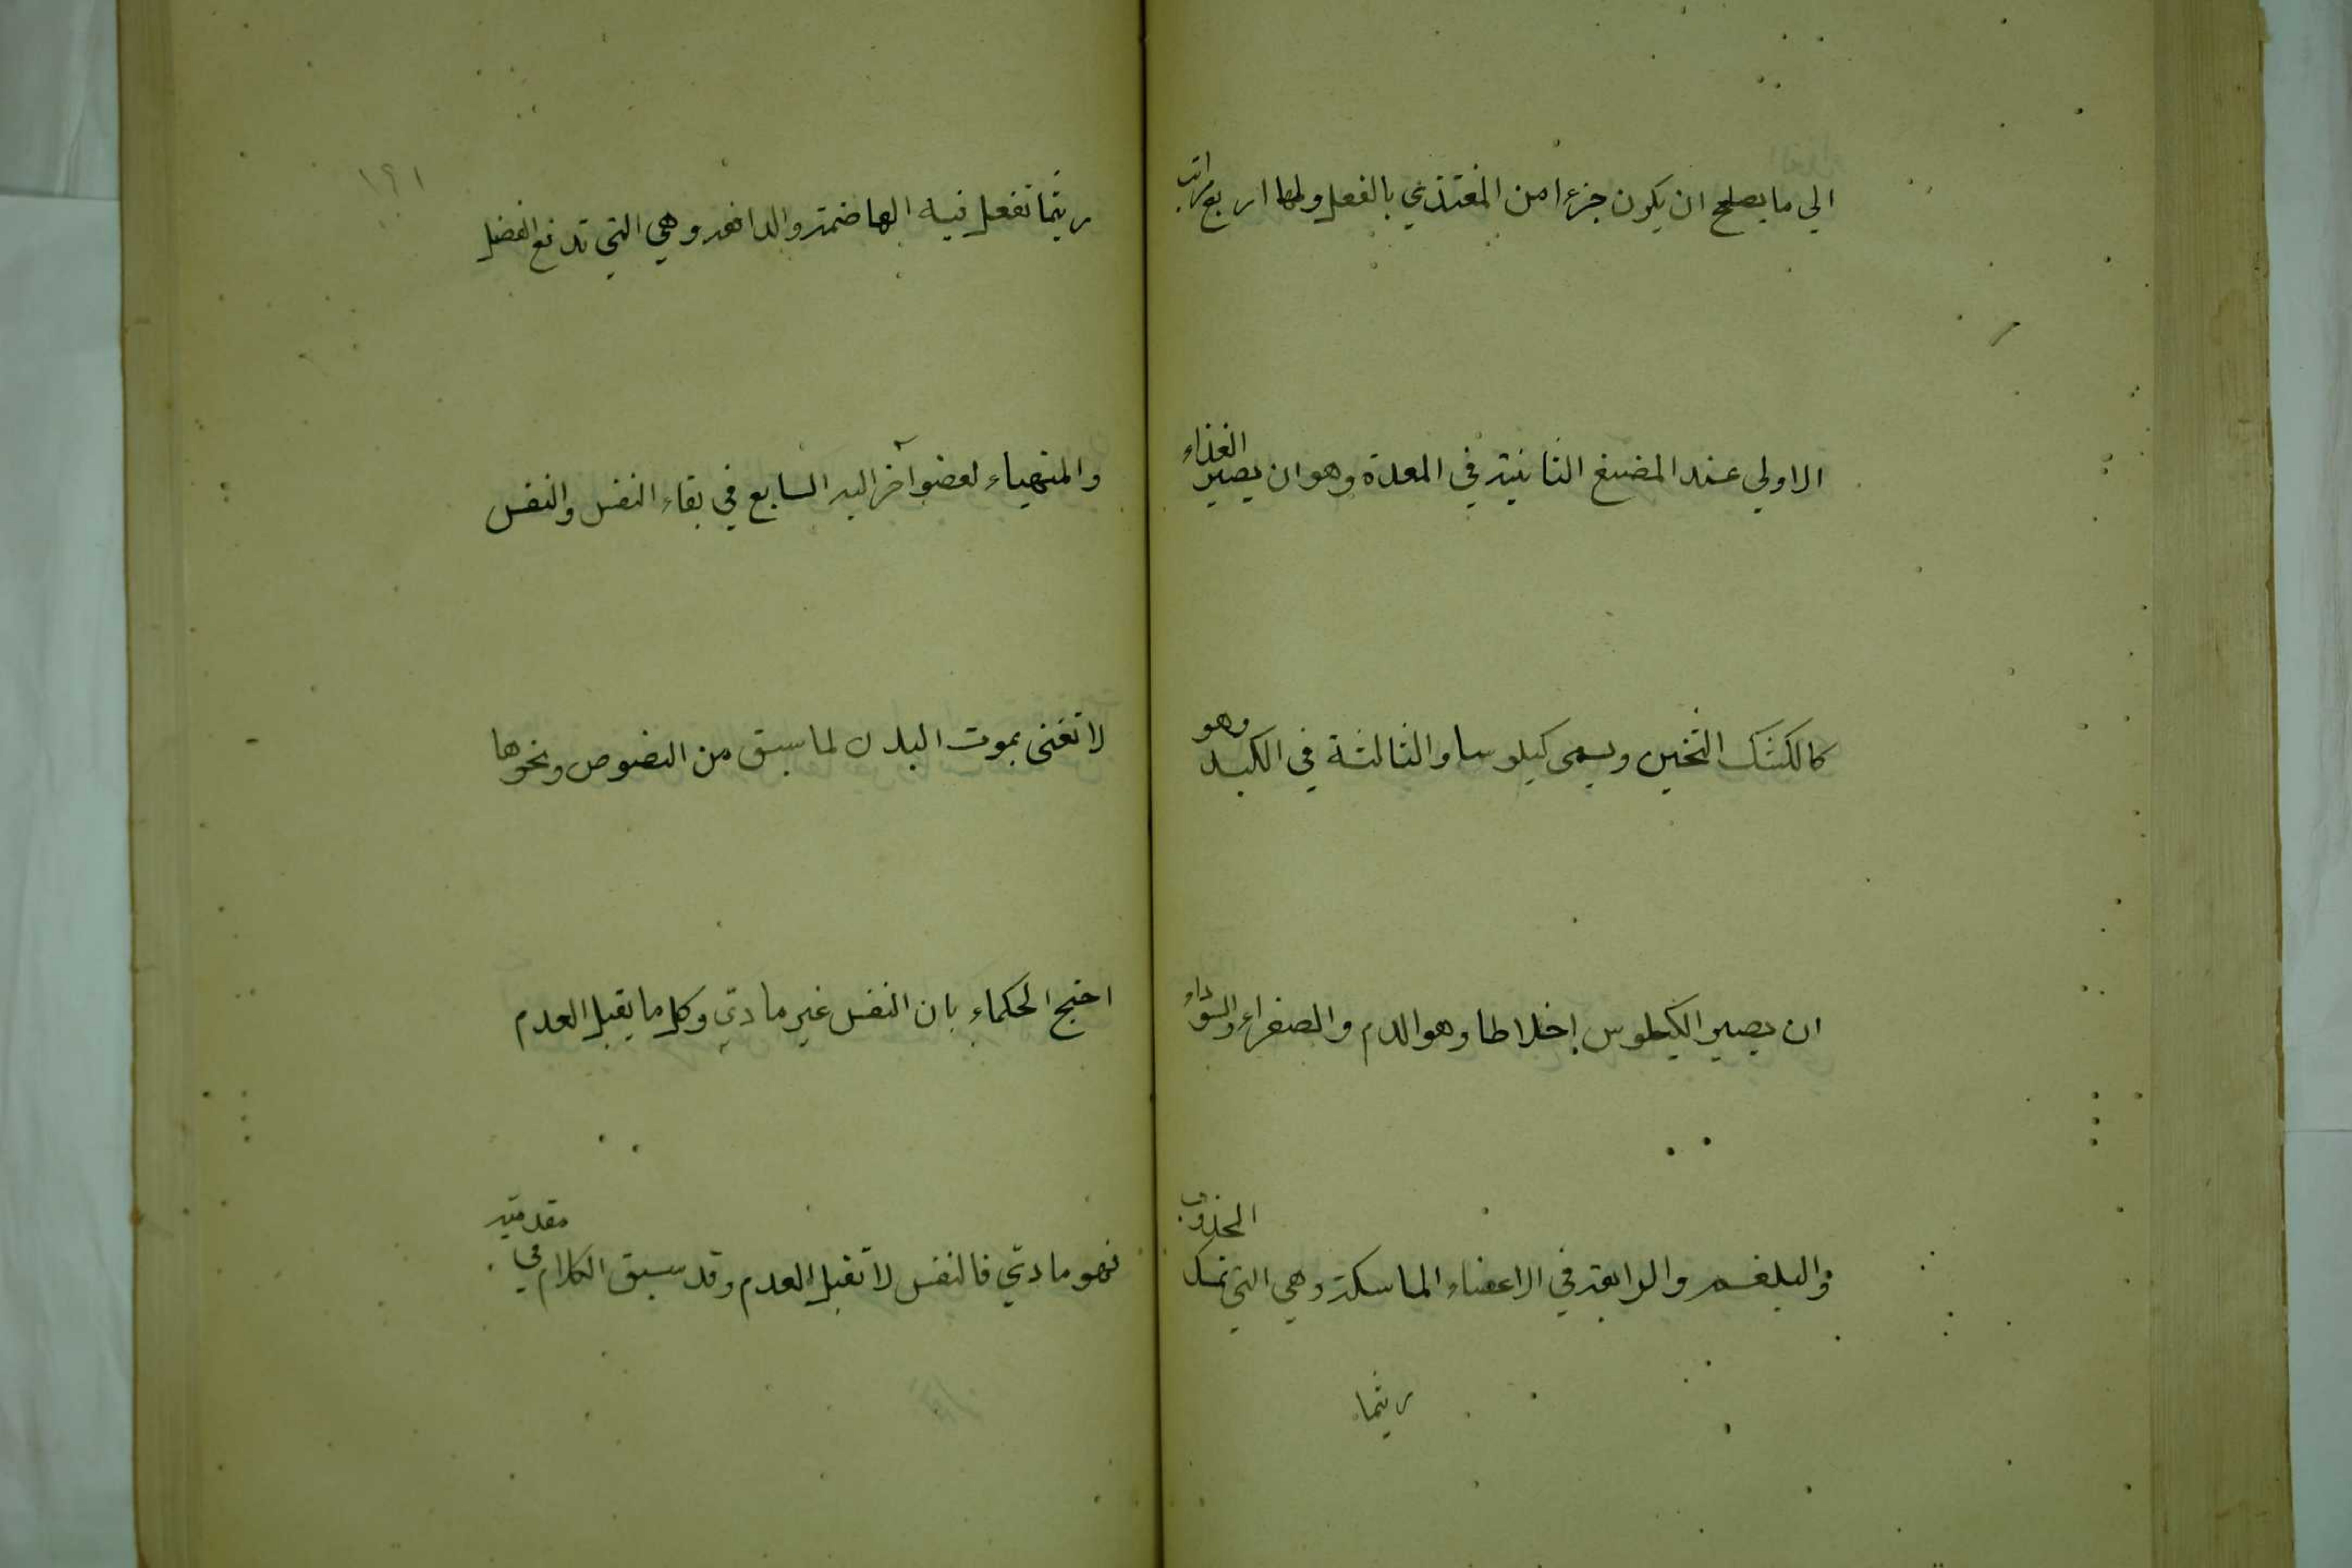 الي ما يصلح ان يكون جزءا من المغتذي بالفعل ولها اربع مراتب
الاولي عند المضغ الثانية في المعدة وهو ان يصير الغذاء
كالكشك الثخين ويسمى كيلوسا والثالثة في الكبد وهو
ان يصير الكيلوس اخلاطا وهو الدم والصفراء والسوداء
والبلغم والرابعة في الاعضاء الماسكة وهي التي تمسك المجذوب
ريثما
١٩١
ريثما تفعل فيه الهاضمة والدافعة وهي التي تدفع الفضل
والمتهياء لعضو آخر اليه السابع في بقاء النفس والنفس
لا تفنى بموت البدن لما سبق من النصوص ونحوها
احتج الحكماء بان النفس غير مادي وكل ما يقبل العدم
فهو مادي فالنفس لا تقبل العدم وقد سبق الكلام في مقدمتيه